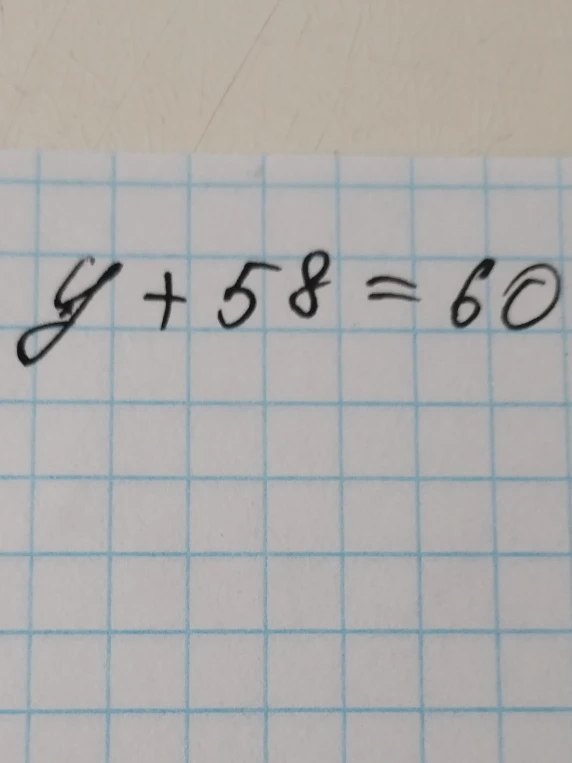 y + 58 = 60